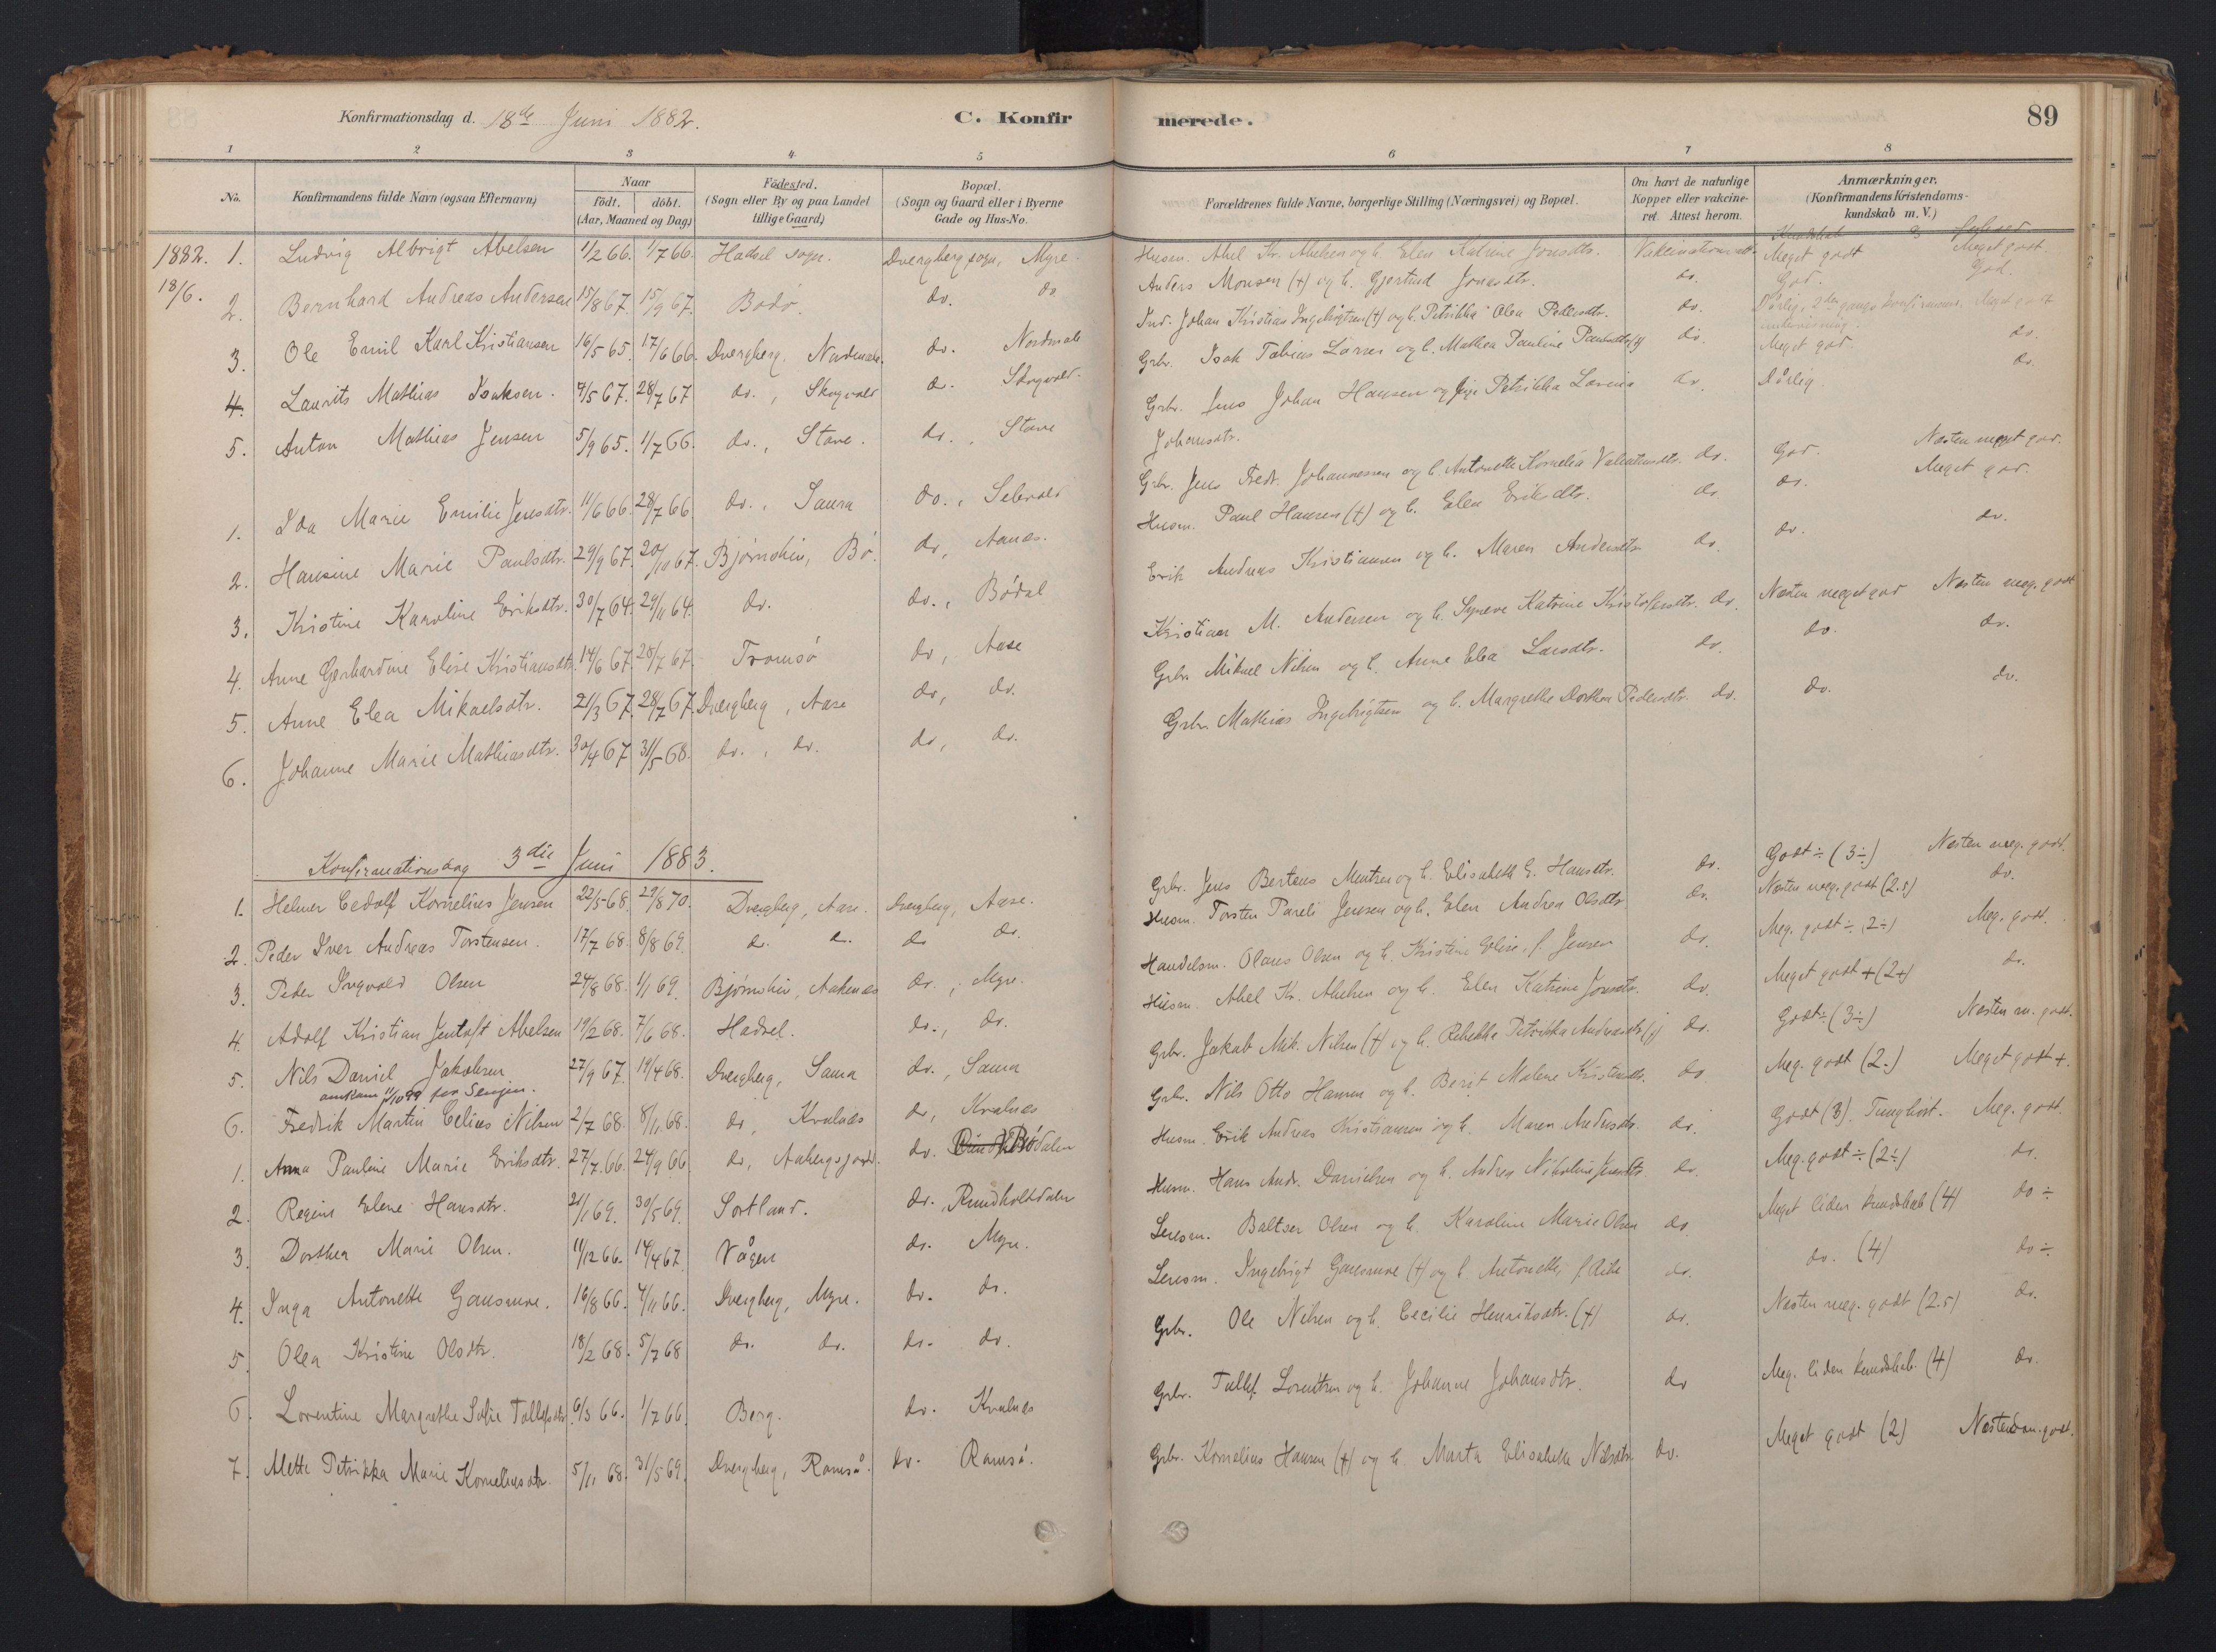 Konfirmationsdag d. 18de Juni 1882. C. Konfirmerede. 89
1 2 3 4 5 6 7 8
No. Konfirmandens fulde Navn (ogsaa Efternavn) Naar født. døbt. (Aar, Maaned og Dag) Fødested. (Sogn eller By og paa Landet tillige Gaard) Bopæl. (Sogn og Gaard eller i Byerne Gade og Hus-No. Forældrenes fulde Navne, borgerlige Stilling (Næringsvei) og Bopæl. Om havt de naturlige Kopper eller vakcineret. Attest herom. Anmærkninger. (Konfirmandens Kristendomskundskab m. V.)
1882. 1. Ludvig Albrigt Abelsen 1/2 66. 1/7 66. Hadsel sogn. Dvergberg sogn, Myre. Husm. Abel Kr. Abelsen og h. Elen Katrine Jonsdtr. Meget godt Meget godt.
18/6. 2. Bernhard Andreas Andersen 15/8 67. 15/9 67. Bodø. do. do Anders Monsen (+) og h. Gjertrud Jonasdtr. do. God. God.
3. Ole Emil Karl Kristiansen 16/5 65. 17/6 66. Dvergberg, Nordmele. do. Nordmele Ind. Johan Kristian Ingebrigtsen (+) og h. Petrikka Olea Pedersdtr. do. Dårlig, 2den gangs Meget godt
4. Laurits Mathias Isaksen. 4/5 67. 28/7 67 do., Skogvold do. Skogvold. Grbr. Isak Tobias Larsen og h. Mathea Pauline Paulsdtr. do. Meget god. do.
5. Anton Mathias Jensen 5/9 65. 1/7 66. do., Stave. do., Stave Grbr. Jens Johan Hansen og Petrikka Lovina Johansdtr. do. Dårlig. do.
1. Ida Marie Emilie Jensdtr. 11/6 66. 28/7 66 do., Saura do., Selvold Grbr. Jens Fredr. Johannessen og h. Antonette Kornelia do. God. Næsten meget god.
2. Hansine Marie Paulsdtr. 29/9 67. 20/10 67. Bjørnskin, Bø. do, Aanes. Husm. Paul Hansen (+) og h. Elen Eriksdtr. do. do. Meget god.
3. Kristine Karoline Eriksdtr. 30/7 64. 29/11 64. do. do., Bödal Erik Andreas Kristiansen og h. Maren Andersdtr. do. do. do.
4. Anne Gerhardine Elise Kristiansdtr. 14/6 67. 28/7 67. Tromsø do, Aase Kristian M. Andersen og h. Synøve Katrine Kristofersdtr. do. Næsten meget god Næsten meg. godt
5. Anne Elea Mikaelsdtr. 21/3 67. 28/7 67. Dvergberg, Aase do, do. Grbr. Mikael Nilsen og h. Anne Elea Larsdtr. do. do. do.
6. Johanne Marie Mathiasdtr. 30/4 67 31/5 68. do., do. do, do. Grbr. Mathias Ingebrigtsen og h. Margrethe Dorthea Pedersdtr. do. do. do.
Konfirmationsdag 3die Juni 1883.
1. Helmer Cedolf Kornelius Jensen 22/5 68. 29/8 70. Dvergberg, Aase. Dvergberg, Aase. Grbr. Jens Berteus Mentsen og h. Elisabeth E. Hansdtr. do. Godt ÷ (3÷) Næsten meg. godt.
2. Peder Iver Andreas Torstensen. 17/7 68. 8/8 69. do. do. do do. Husm. Torsten Pareli Jensen og h. Elen Andrea Olsdtr. do. Næsten meg. godt (2.5) do.
3. Peder Ingvald Olsen 24/8 68. 1/1 69. Bjørnskin, Aaknæs do., Myre. Handelsm. Olaus Olsen og h. Kristine Elise, f. Jensen do. Meg. godt ÷ (2÷) Meg. godt.
4. Adolf Kristian Jentoft Abelsen 19/2 68. 7/6 68. Hadsel. do., do. Husm. Abel Kr. Abelsen og h. Elen Katrine Jonsdtr. do. Meget godt + (2+) do.
5. Nils Daniel Jakobsen 27/9 67. 19/4 68. Dvergberg, Saura do., Saura Grbr. Jakob Mik. Nilsen (+) og h. Rebekka Petrikka Andreasdtr (+) do. Godt ÷ (3÷) Næsten m. godt.
omkom
6. Fredrik Martin Celius Nilsen 2/7 68. 8/11 68. do, Kvalnæs do, Kvalnæs Grbr. Nils Otto Hansen og h. Berit Malene Kristensdtr. do Meg. godt (2.) Meget godt +.
1. Anna Pauline Marie Eriksdtr. 27/7 66. 24/9 66. do, Aabergsjord. do. Bødalen Husm. Erik Andreas Kristiansen og h. Maren Andersdtr. do. Godt (3). Tunghört. Meg. godt.
2. Regine Elene Hansdtr. 21/1 69. 30/5 69. Sortland. do., Rundholtdalen Husm. Hans Andr. Danielsen og h. Andrea Nikoline Jensdtr. do Meg. godt ÷ (2÷) do.
3. Dorthea Marie Olsen. 11/12 66. 14/4 67. Vågen do. Myre. Leiesm. Baltser Olsen og h. Karoline Marie Olsen do Meget liden kundskab (4) do ÷
4. Inga Antonette Gausmoe. 16/8 66. 4/11 66. Dvergberg, Myre. do. do. Leiesm. Ingebrigt Gausmoe (+) og h. Antonette, do. do. (4) do ÷
5. Olea Kristine Olsdtr. 18/2 68. 5/7 68 do. do. do. do. Grbr. Ole Nilsen og h. Cecilie Henriksdtr. (+) do. Næsten meg. godt (2.5) do.
6. Lorentine Margrethe Sofie Tollefsdtr. 6/3 66. 1/7 66. Berg. do. Kvalnes Grbr. Tollef Lorentsen og h. Johanne Johansdtr. do Meg. liden kundskab. (4) do.
7. Alette Petrikka Marie Korneliusdtr. 5/11 68. 31/5 69. Dvergberg, Ramså. do. Ramså. Grbr. Kornelius Hansen (+) og h. Marta Elisabeth Nilsdtr. do. Meget godt (2)